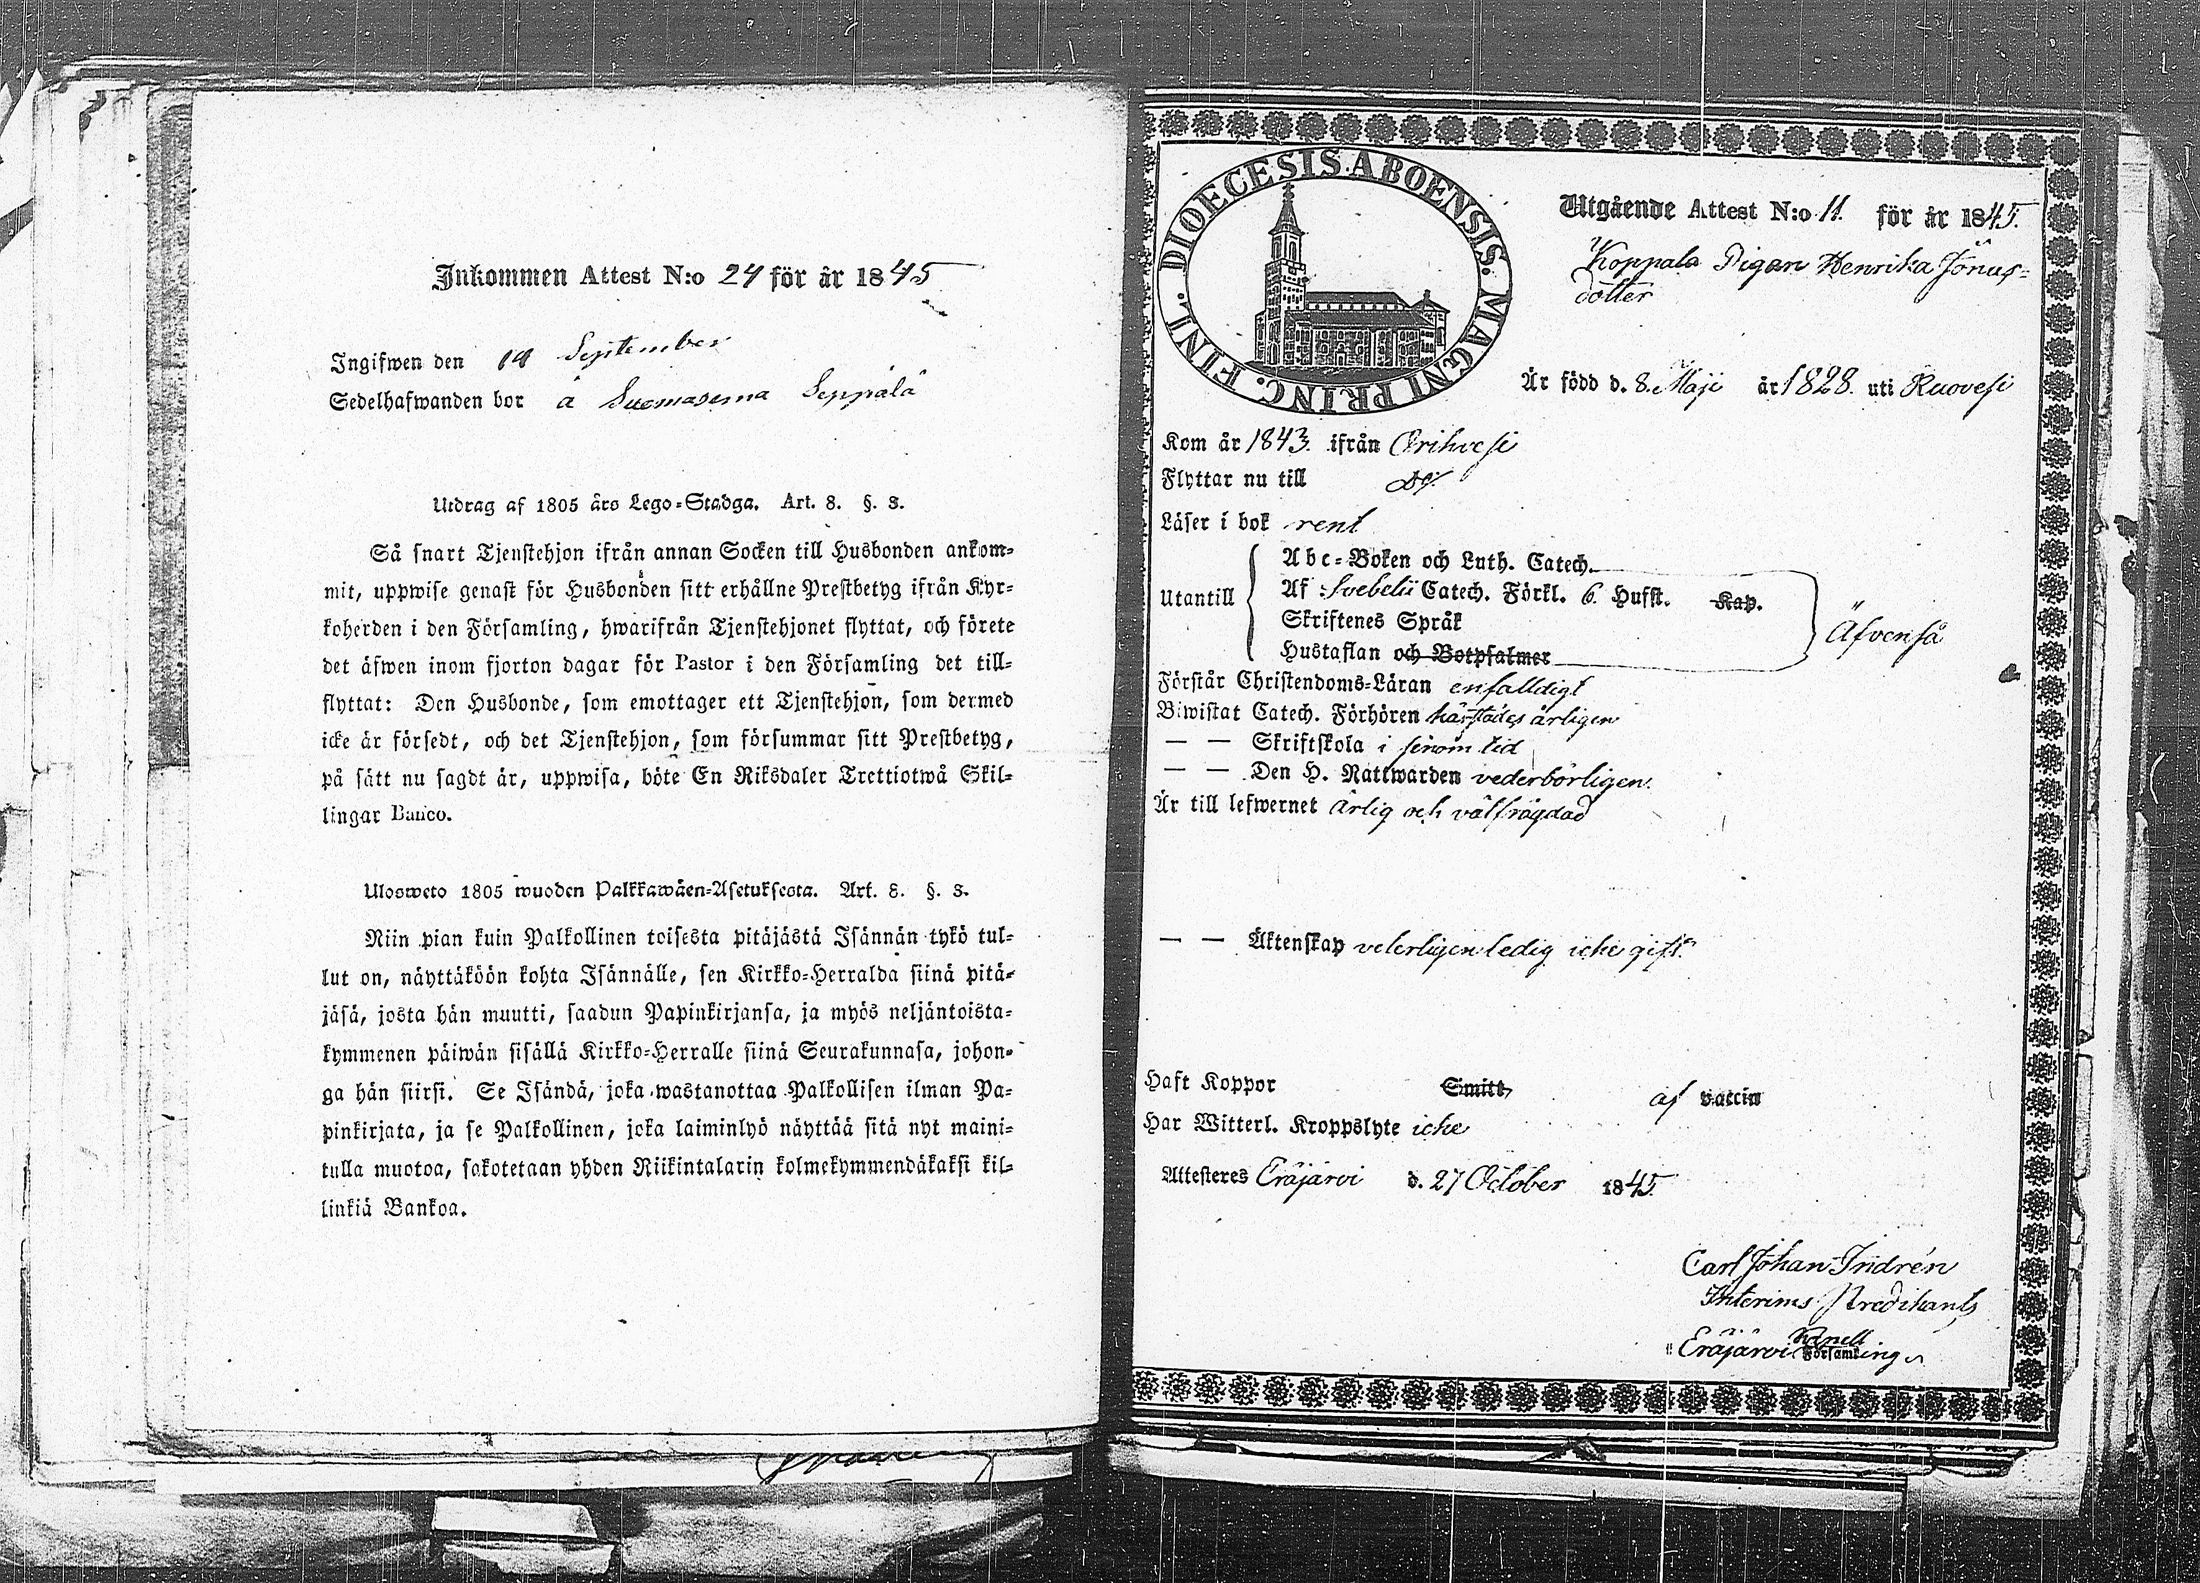 Inkommen Attest N:o 24 för år 1845
Ingifwen den 14 September
Sedelhafwanden bor å Suomasema Seppälä
Utdrag af 1805 års Lego-Stadga. Art. 8. §. 3.
Så snart Tjenstehjon ifrån annan Socken till Husbonden ankom-
mit, uppwise genast för Husbonden sitt erhållne Prestbetyg ifrån Kyr-
koherden i den Församling, hwarifrån Tjenstehjonet flyttat, och förete
det äfwen inom fjorton dagar för Pastor i den Församling det till-
flyttat: Den Husbonde, som emottager ett Tjenstehjon, som dermed
icke är försedt, och det Tjenstehjon, som försummar sitt Prestbetyg,
på sätt nu sagdt är, uppwisa, böte En Riksdaler Trettiotwå Skil-
lingar Banco.
Ulosweto 1805 wuoden Palkkawäen-Asetuksesta. Art. 8. §. 3.
Niin pian kuin Palkollinen toisesta pitäjästä Isännän tykö tul-
lut on, näyttäköön kohta Isännälle, sen Kirkko-Herralda siinä pitä-
jäsä, josta hän muutti, saadun Papinkirjansa, ja myös neljäntoista-
kymmenen päiwän sisällä Kirkko-Herralle siinä Seurakunnasa, johon-
ga hän siirsi. Se Isändä, joka wastanottaa Palkollisen ilman Pa-
pinkirjata, ja se Palkollinen, joka laiminlyö näyttää sitä nyt maini-
tulla muotoa, sakotetaan yhden Riikintalarin kolmekymmendäkaksi kil-
linkiä Bankoa.
DIOECESIS ABOENSIS. MAGNI PRINC. FINL.
Utgående Attest N:o 11. för år 1845.
Koppala Pigan Henrika Jönus-
dotter
Är född d. 8. Maji år 1828. uti Ruovesi
Kom år 1843. ifrån Orihvesi
Flyttar nu till D:o
Läser i bok rent
Utantill
Abc-Boken och Luth. Catech.
Af Svebelii Catech. Förkl. 6. Hufst. Kap.
Skriftenes Språk
Hustaflan och Botpsalmer
Äfvenså
Förstår Christendoms-Läran enfalldigt
Biwistat Catech. Förhören härstädes årligen
— — Skriftskola i sinom tid
— — Den H. Nattwarden vederbörligen.
Är till lefwernet ärlig och välfrägdad
— — Äktenskap veterligen ledig icke gift.
Haft Koppor Smitt, af vaccin
Har Witterl. Kroppslyte icke
Attesteres Eräjärvi d. 27 October 1845.
Carl Johan Indrén
Interims Predikant
Eräjärvi Kapell
Församling